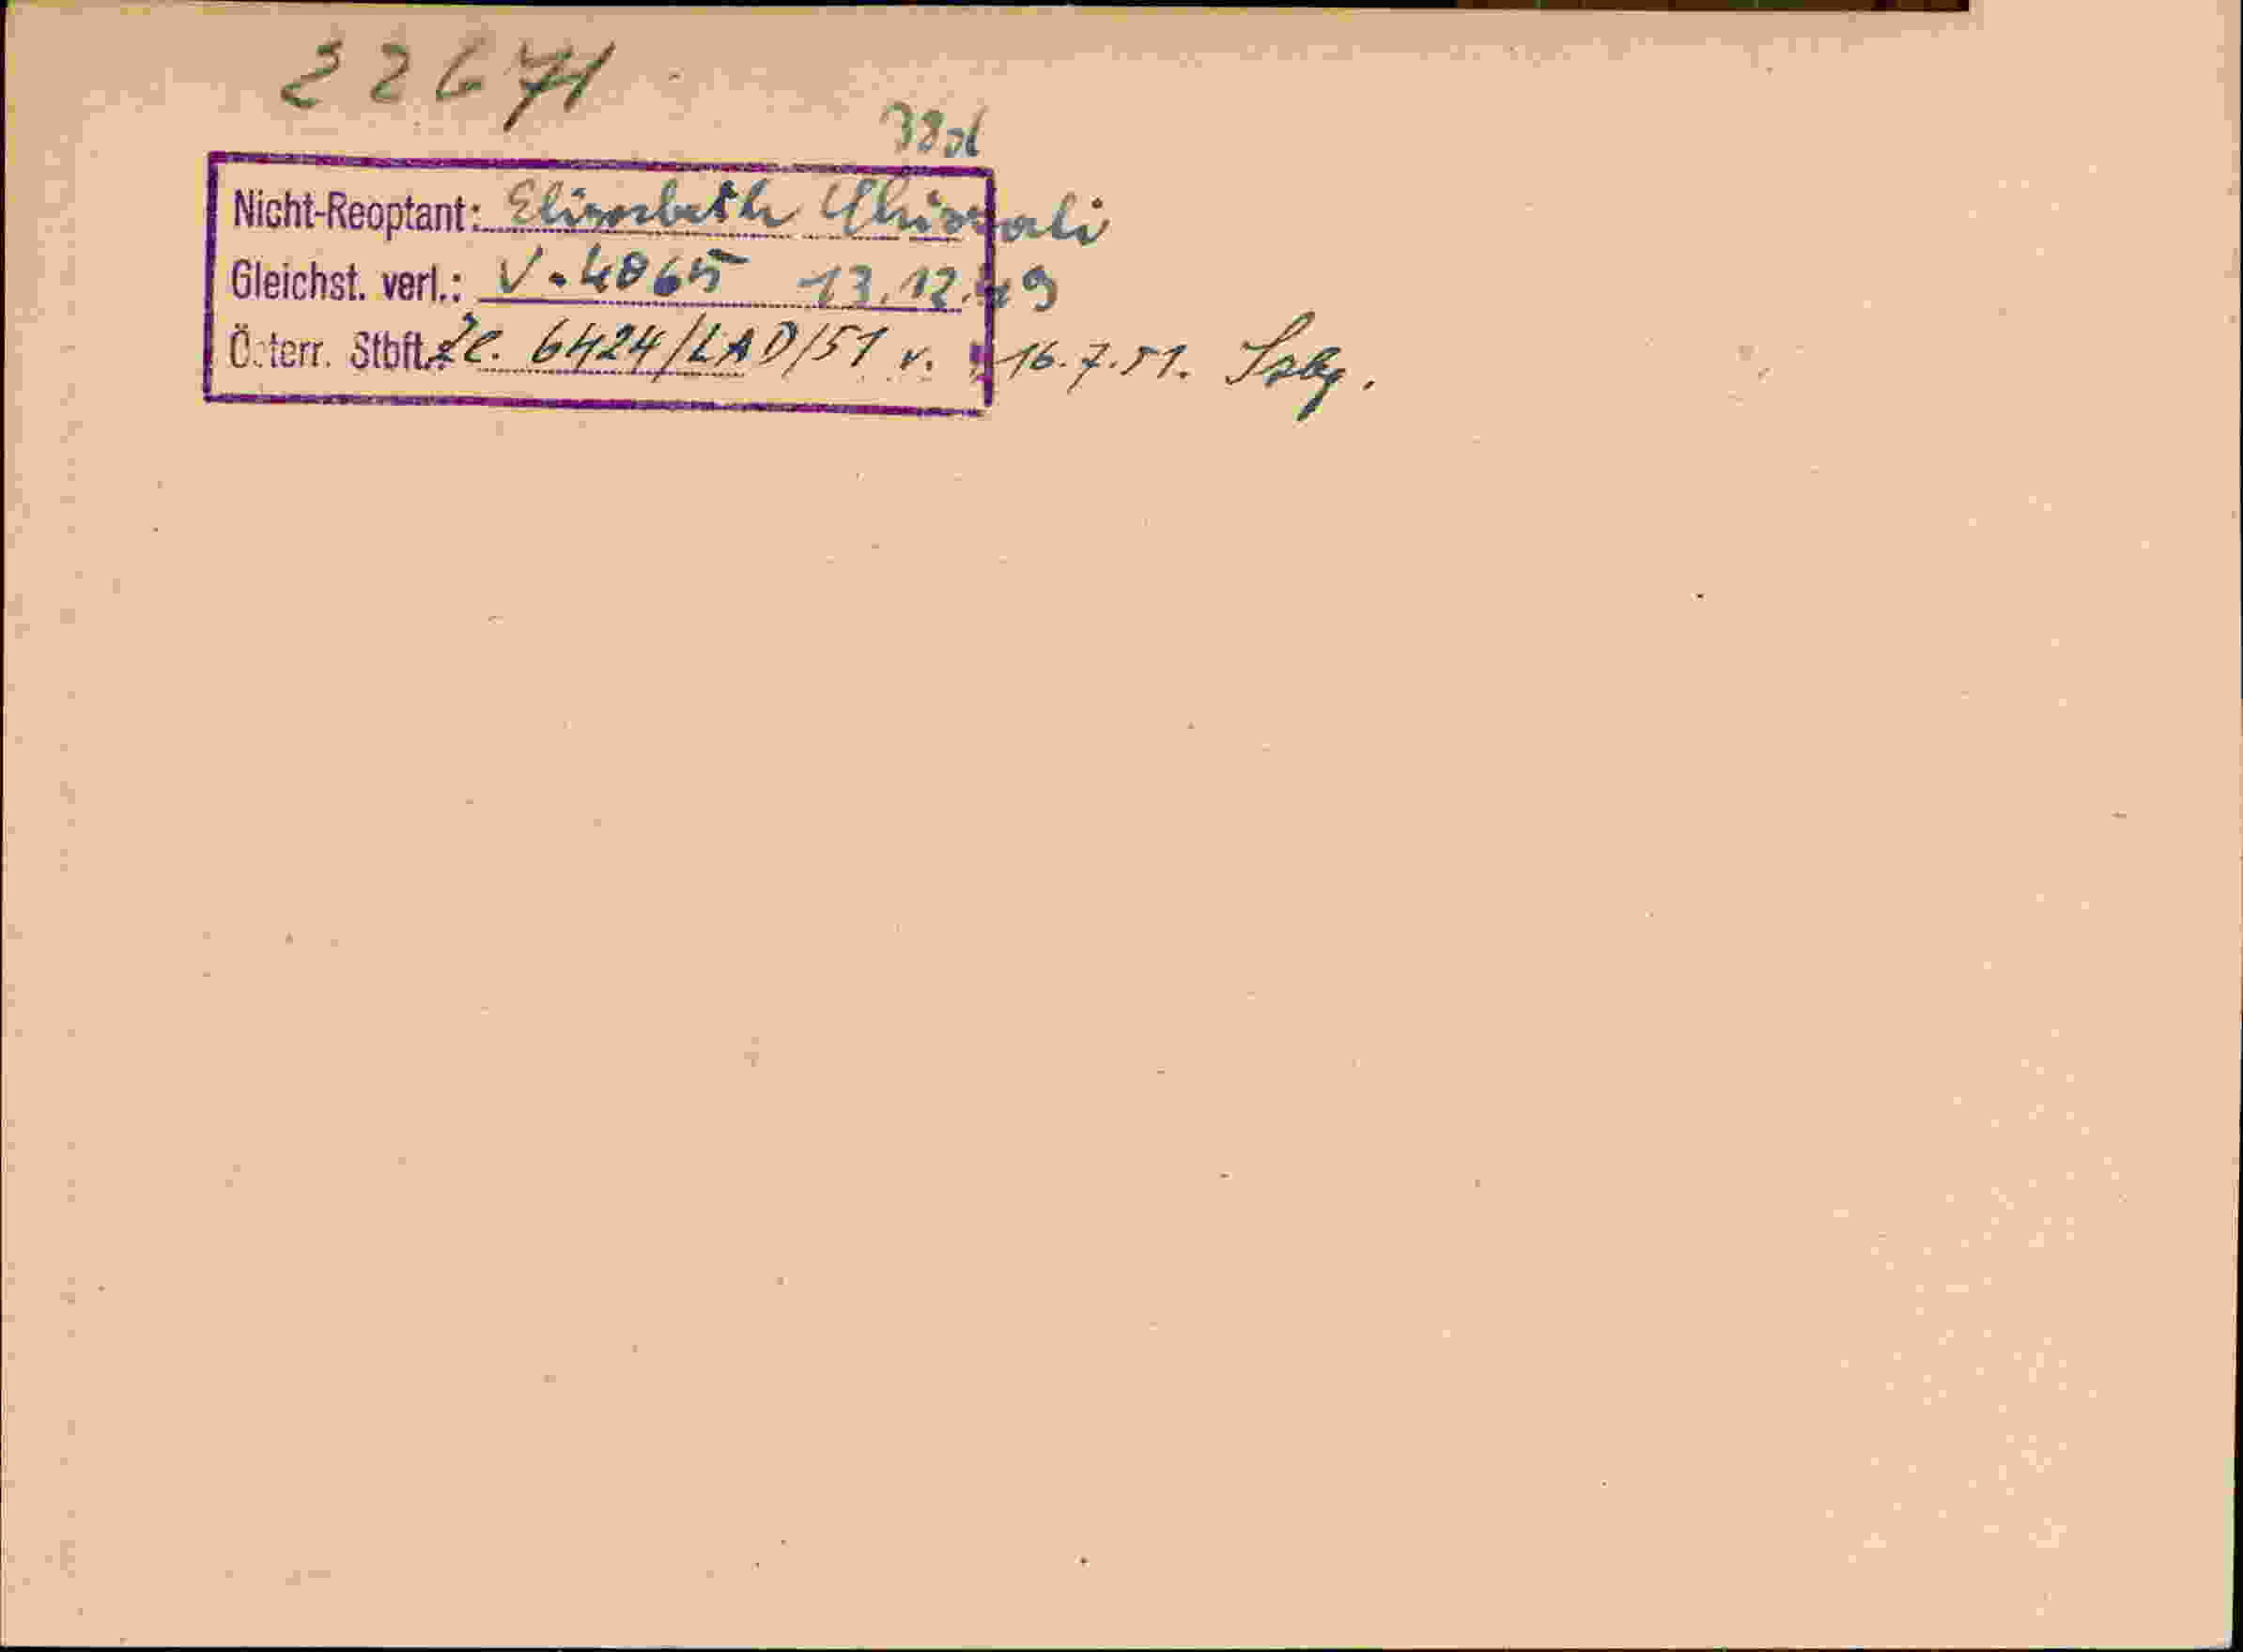 22671
Nicht-Reoptant: Elisabeth
Gleichst. verl.: V. 4865 13.12.49
Österr. Stbft.: Zl. 6424/LAD/51 v. 16.7.51. Szbg.